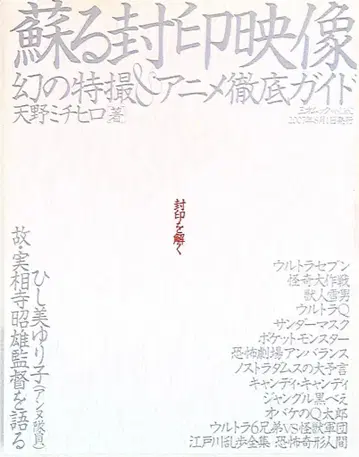 蘇る封印映像
幻の特撮&アニメ徹底ガイド
天野ミチヒロ[著]
2007年8月1日発行
封印を解く
ひし美ゆり子(アンヌ隊員)
故・実相寺昭雄監督を語る
ウルトラセブン
怪奇大作戦
獣人雪男
ウルトラQ
サンダーマスク
ポケットモンスター
恐怖劇場アンバランス
ノストラダムスの大予言
キャンディ・キャンディ
ジャングル黒べえ
オバケのQ太郎
ウルトラ6兄弟VS怪獣軍団
江戸川乱歩全集 恐怖奇形人間